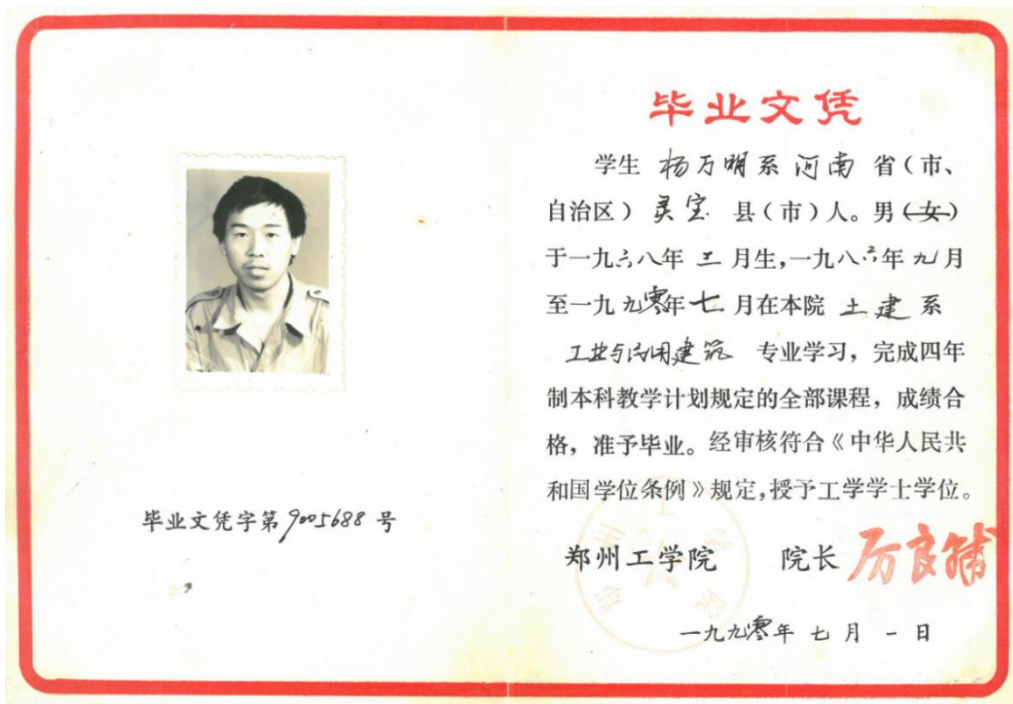 毕业文凭
学生 杨万明系河南省(市、
自治区)灵宝 县(市)人。男(女)
于一九六八年 三 月生,一九八六年九月
至一九九零年七月在本院 土建系
工业与民用建筑 专业学习,完成四年
制本科教学计划规定的全部课程,成绩合
格,准予毕业。经审核符合《中华人民共
和国学位条例》规定,授予工学学士学位。
郑州工学院 院长 厉良辅
一九九零年 七 月 一 日
毕业文凭字第9005688号